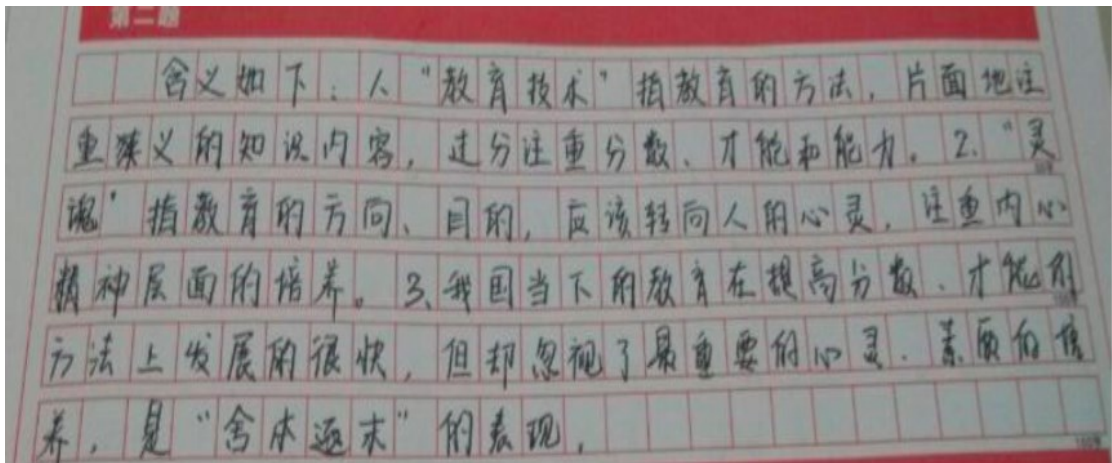 第二题
含义如下：1、“教育技术”指教育的方法，片面地注
重狭义的知识内容，过分注重分数、才能和能力。2、“灵
魂”指教育的方向、目的，应该转向人的心灵，注重内心
精神层面的培养。3、我国当下的教育在提高分数、才能的
方法上发展的很快，但却忽视了最重要的心灵、素质的培
养，是“舍本逐末”的表现。